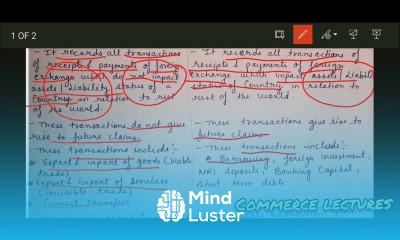 1 OF 2
- It records all transactions
of receipts & payments of foreign
exchange which do not impact
assets/liability status of a
Country in relation to rest
of the world.
- These transactions do not give
rise to future claims.
- These transactions include:-
Export & import of goods (visible
trade)
Export & import of services
(invisible trade)
Current transfers
- It records all transactions of
receipts & payments of foreign
exchange which impact assets/liability
status of Country in relation to
rest of the world.
- These transactions give rise to
future claims
- These transactions include:
Borrowing, foreign investment,
NRI deposits, Banking Capital,
Short term debts
Mind
Luster
COMMERCE LECTURES